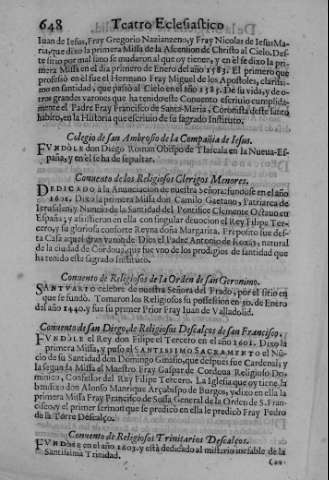 648 Teatro Eclesiastico
Iuan de Iesus, Fray Gregorio Nazianzeno, y Fray Nicolas de Iesus Ma-
ria, que dixo la primera Missa de la Ascension de Christo al Cielo. Des-
te sitio por mal sano se mudaron al que oy tienen, y en èl se dixo la pri-
mera Missa en el dia primero de Enero del año 1585. El primero que
professò en èl fue el Hermano Fray Miguel de los Apostoles, clarissi-
mo en santidad, que passò al Cielo en el año 1585. De su vida, y de o-
tros grandes varones que ha tenido este Convento escriviò cumplida-
mente el Padre Fray Francisco de Santa Maria, Coronista deste santo
habito, en la Historia que escriviò de su sagrado Instituto.
Colegio de san Ambrosio de la Compañia de Iesus.
FVNDOLE don Diego Roman Obispo de Tlaxcala en la Nueva-Es-
paña, y en èl se ha de sepultar.
Convento de los Religiosos Clerigos Menores.
DEDICADO à la Anunciacion de nuestra Señora: fundòse en el año
Dixo la primera Missa don Camilo Gaetano, Patriarca de
Ierusalen, y Nuncio de la Santidad del Pontifice Clemente Octavo en
España; y assistieron en ella con singular devocion el Rey Filipe Ter-
cero, y su gloriosa consorte Reyna doña Margarita. Preposito fue des-
ta Casa aquel gran varon de Dios el Padre Antonio de natural
de la ciudad de Cordova, que fue vno de los prodigios de santidad que
ha tenido este sagrado Instituto.
Convento de Religiosos de la Orden de san Geronimo.
SANTVARIO celebre de nuestra Señora del Prado, por el sitio en
que se fundò. Tomaron los Religiosos su possession en 30. de Enero
del año 1440. y fue su primer Prior Fray Iuan de Valladolid.
Convento de san Diego, de Religiosos Descalços de san Francisco.
FVNDOLE el Rey don Filipe el Tercero en el año 1601. Dixo la
primera Missa, y puso el SANTISSIMO SACRAMENTO el Nũ-
cio de su Santidad don Domingo Gimasio, que despues fue Cardenal; y
la segunda Missa el Maestro Fray Gaspar de Cordova Religioso Do-
minico, Confessor del Rey Filipe Tercero. La Iglesia que oy tiene, la
bendixo don Alonso Manrique Arçobispo de Burgos, y dixo en ella la
primera Missa Fray Francisco de Sossa General de la Orden de S. Fran-
cisco; y el primer sermon que se predicò en ella le predicò Fray Pedro
de la Torre Descalço.
Convento de Religiosos Trinitarios Descalços.
FVNDOSE en el año 1603. y està dedicado al misterio inefable de la
Santissima Trinidad.
Con-